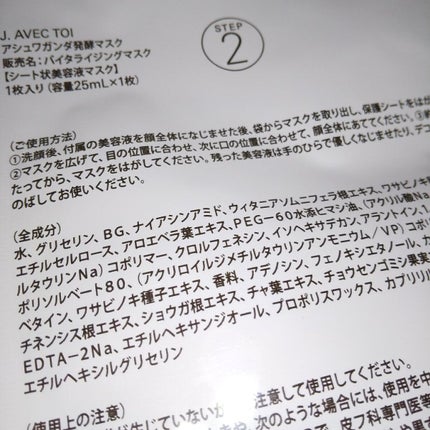 J. AVEC TOI
アシュワガンダ発酵マスク
販売名：バイタライジングマスク
【シート状美容液マスク】
1枚入り（容量25mL×1枚）
STEP
2
（ご使用方法）
①洗顔後、付属の美容液を顔全体になじませた後、袋からマスクを取り出し、保護シートをはが
②マスクを広げて、目の位置に合わせ、次に口の位置に合わせて、顔全体にあててください。③約
たってから、マスクをはがしてください。残った美容液は手のひらで優しくなじませたり、デコ
のばしてお使いください。
（全成分）
水、グリセリン、BG、ナイアシンアミド、ウィタニアソムニフェラ根エキス、ワサビノキ種
エチルセルロース、アロエベラ葉エキス、PEG-60水添ヒマシ油、（アクリル酸Na
ルタウリンNa）コポリマー、クロルフェネシン、イソヘキサデカン、アラントイン、1,
ポリソルベート80、（アクリロイルジメチルタウリンアンモニウム/VP）コポリマ
ベタイン、ワサビノキ種子エキス、香料、アデノシン、フェノキシエタノール、カ
チネンシス根エキス、ショウガ根エキス、チャ葉エキス、チョウセンゴミシ果実
EDTA-2Na、エチルヘキサンジオール、プロポリスワックス、カプリリル
エチルヘキシルグリセリン
（使用上の注意）
が生じていないか
注意して使用してください。
次のような場合には、使用を中
皮フ科専門医等